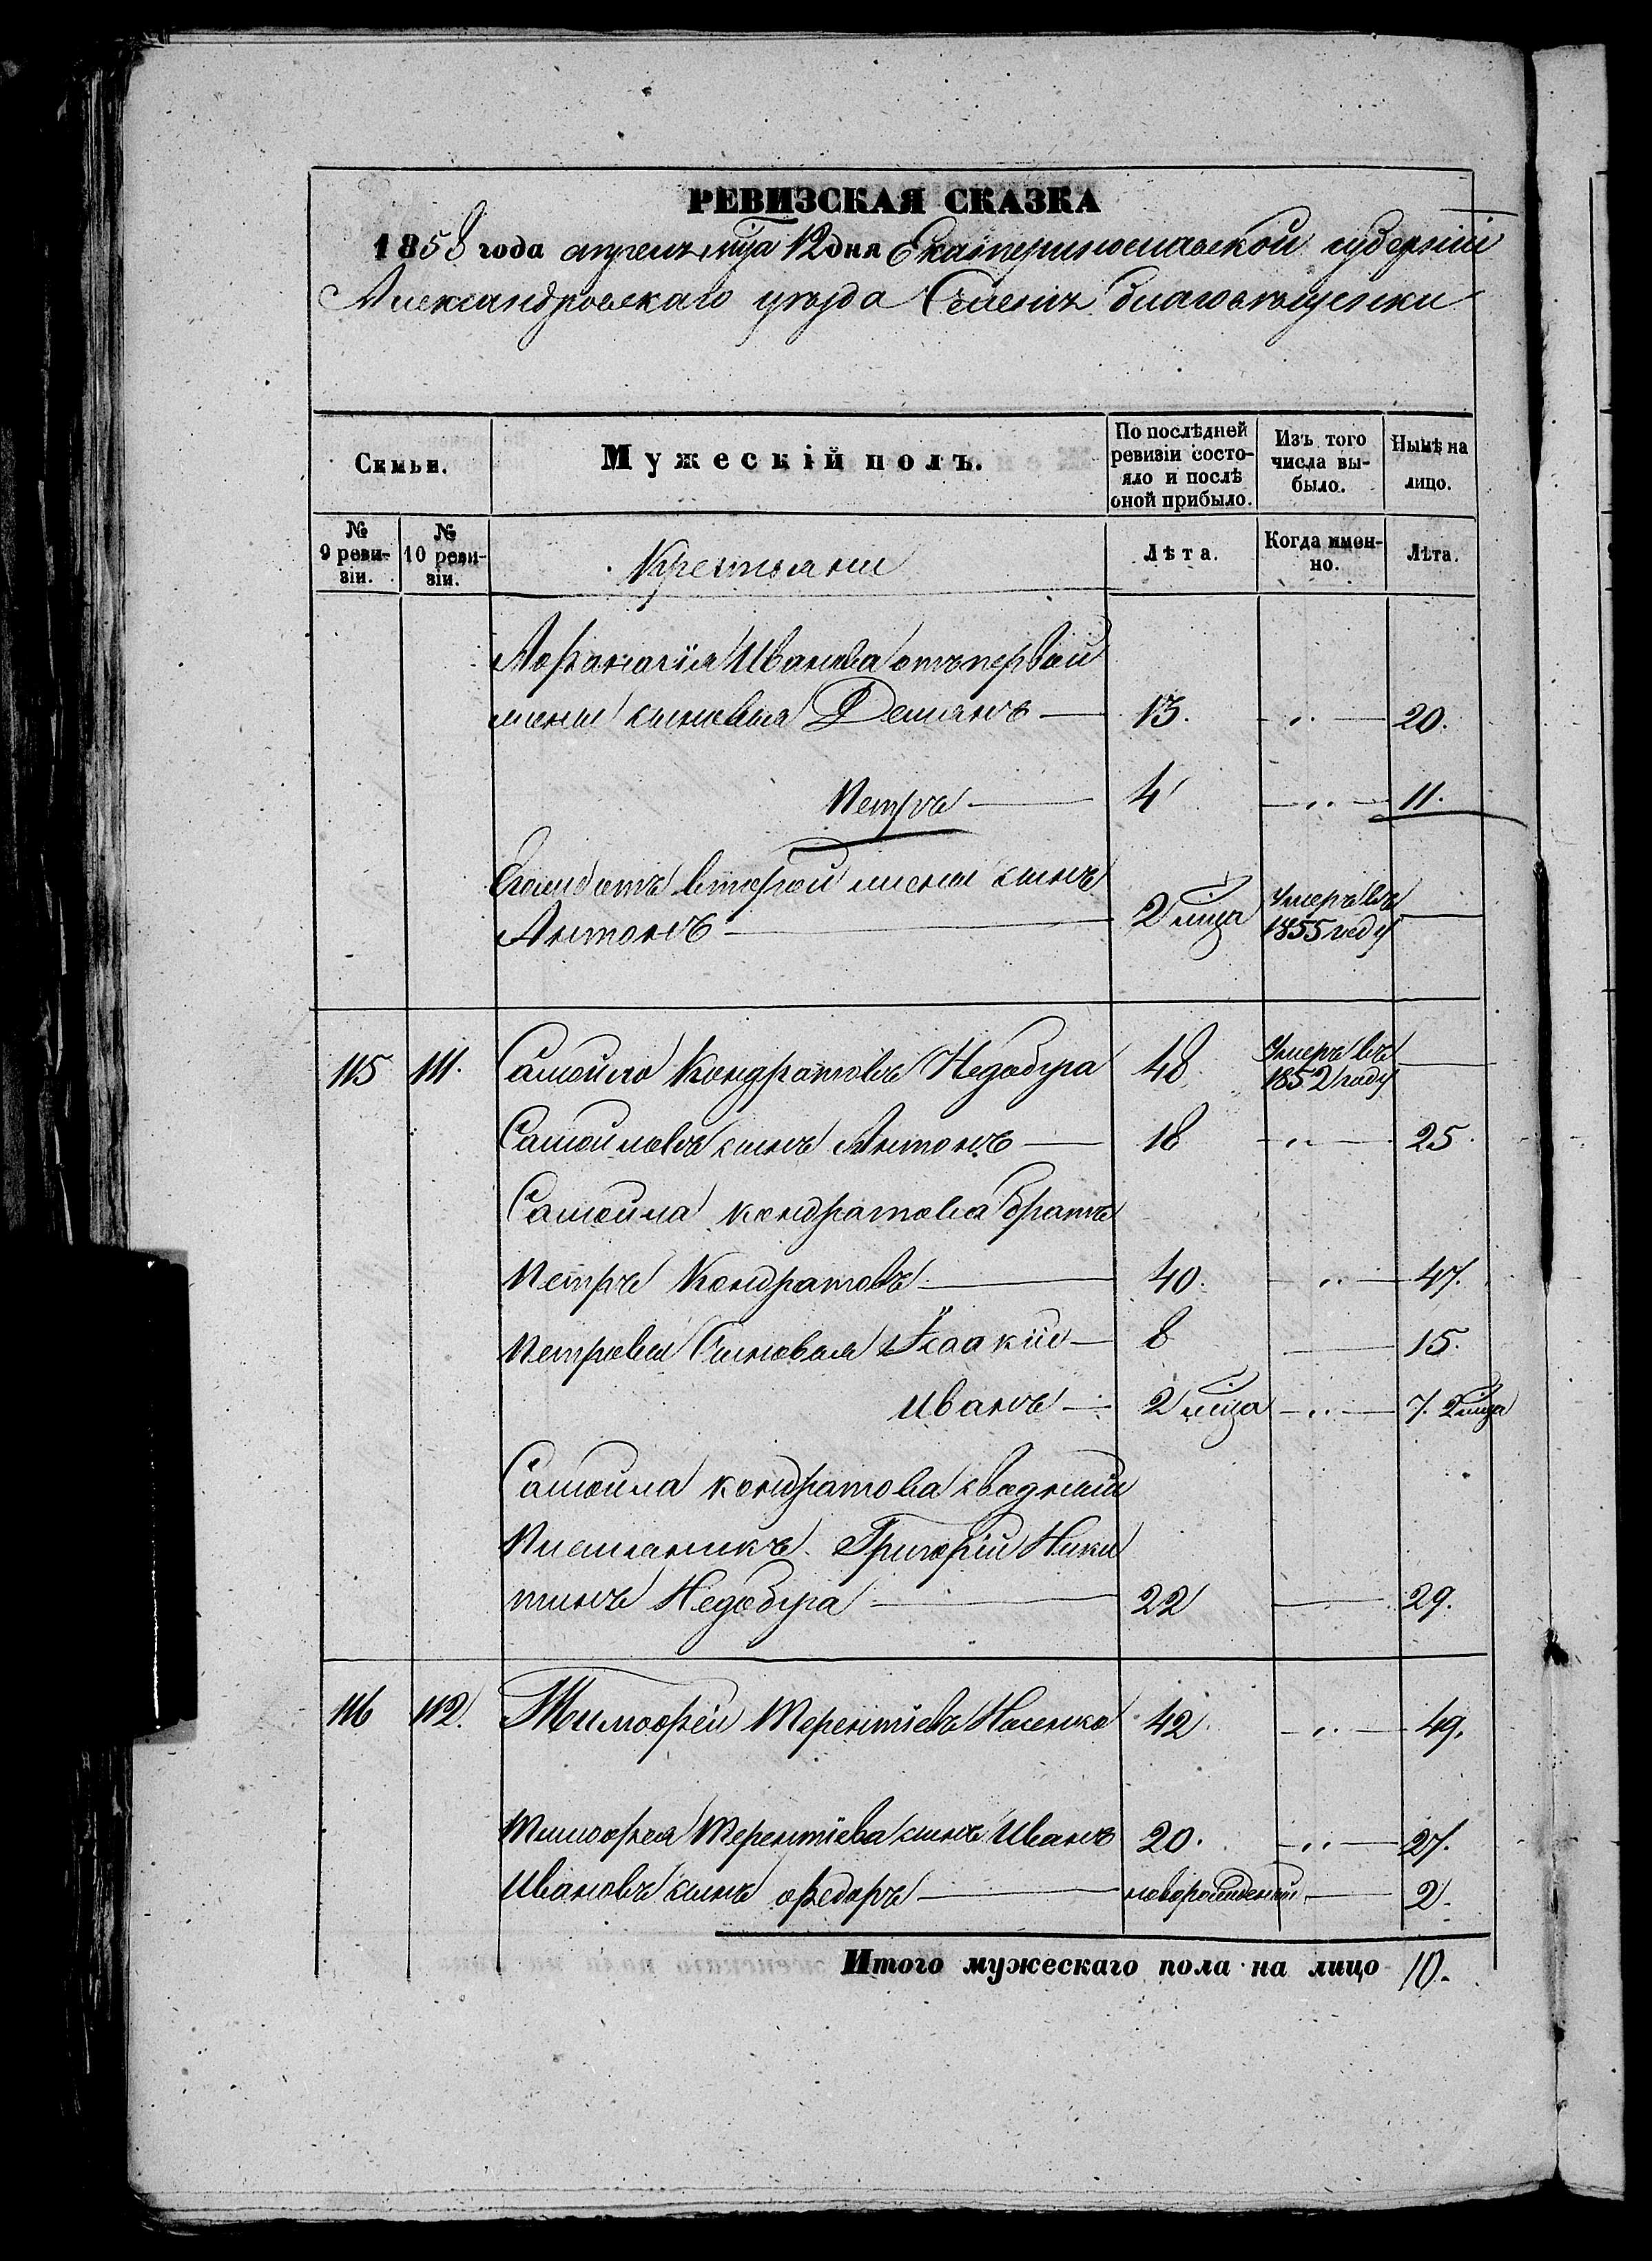 РЕВИЗСКАЯ СКАЗКА
1858 года апреля мца 12 дня Екатеринославской губернии
Александровскаго уезда Селенія благовещенки
Семьи.
Мужескій полъ.
По послѣдней ревизіи состояло и послѣ оной прибыло.
Изъ того числа выбыло.
Нынѣ на лицо.
№ 9 ревизіи.
№ 10 ревизіи.
Крестьяни
Лѣта.
Когда именно.
Лѣта.
Афанасія Иванова отъ первой
жены сыновья Демянъ 13. 20.
Петръ 4 11.
Его жъ отъ второй жены сынъ
Антонъ 2 мца Умеръ въ 1855 году
115 111. Самойло Кондратовъ Недобура 48. Умеръ въ 1852 году
Самойловъ сынъ Антонъ 18 25.
Самойла Кондратова братъ
Петръ Кондратовъ 40. 47.
Петровы Сыновья Исаакій 8 15.
Иванъ 2 мца 7. 2 мца
Самойла кондратова сводный
Племяникъ Григорій Ники
тинъ Недобура 22 29.
116 112. Тимофей Терентіевъ Носенко 42. 49.
Тимофея Терентіева сынъ Иванъ 20. 27.
Ивановъ сынъ федоръ новорожденый 2.
Итого мужескаго пола на лицо 10.